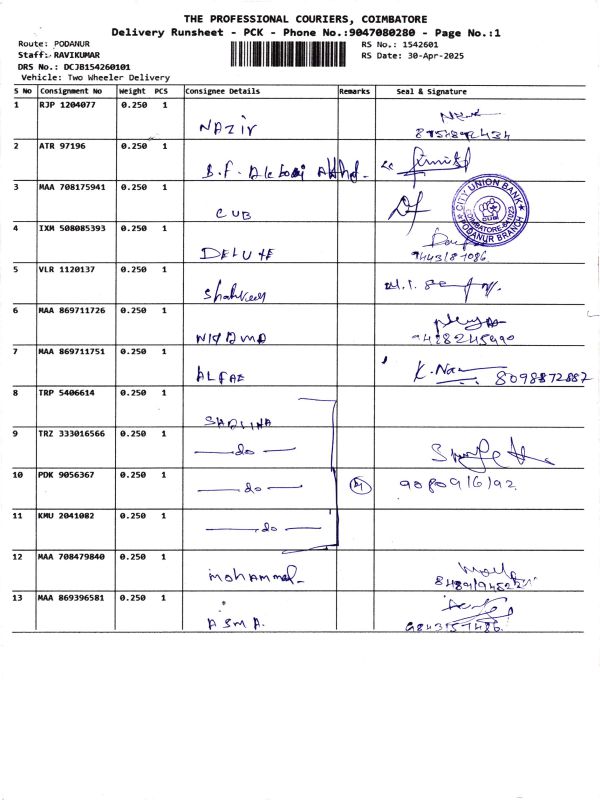 THE PROFESSIONAL COURIERS, COIMBATORE
Delivery Runsheet - PCK - Phone No.:9047080280 - Page No.:1
Route: PODANUR
RS No.: 1542601
Staff: RAVIKUMAR
RS Date: 30-Apr-2025
DRS No.: DCJB154260101
Vehicle: Two Wheeler Delivery
S No Consignment No Weight PCS Consignee Details Remarks Seal & Signature
1 RJP 1204077 0.250 1
NAZIR
2 ATR 97196 0.250 1
B.F.
3 MAA 708175941 0.250 1
CUB
CITY UNION BANK
CUB
COIMBATORE-641023
PODANUR BRANCH
4 IXM 508085393 0.250 1
DELUXE
5 VLR 1120137 0.250 1
6 MAA 869711726 0.250 1
7 MAA 869711751 0.250 1
ALFAZ
K.
8098872887
8 TRP 5406614 0.250 1
9 TRZ 333016566 0.250 1
do
10 PDK 9056367 0.250 1
do
9080916192
11 KMU 2041082 0.250 1
do
12 MAA 708479840 0.250 1
13 MAA 869396581 0.250 1
ASMA.
9843157486